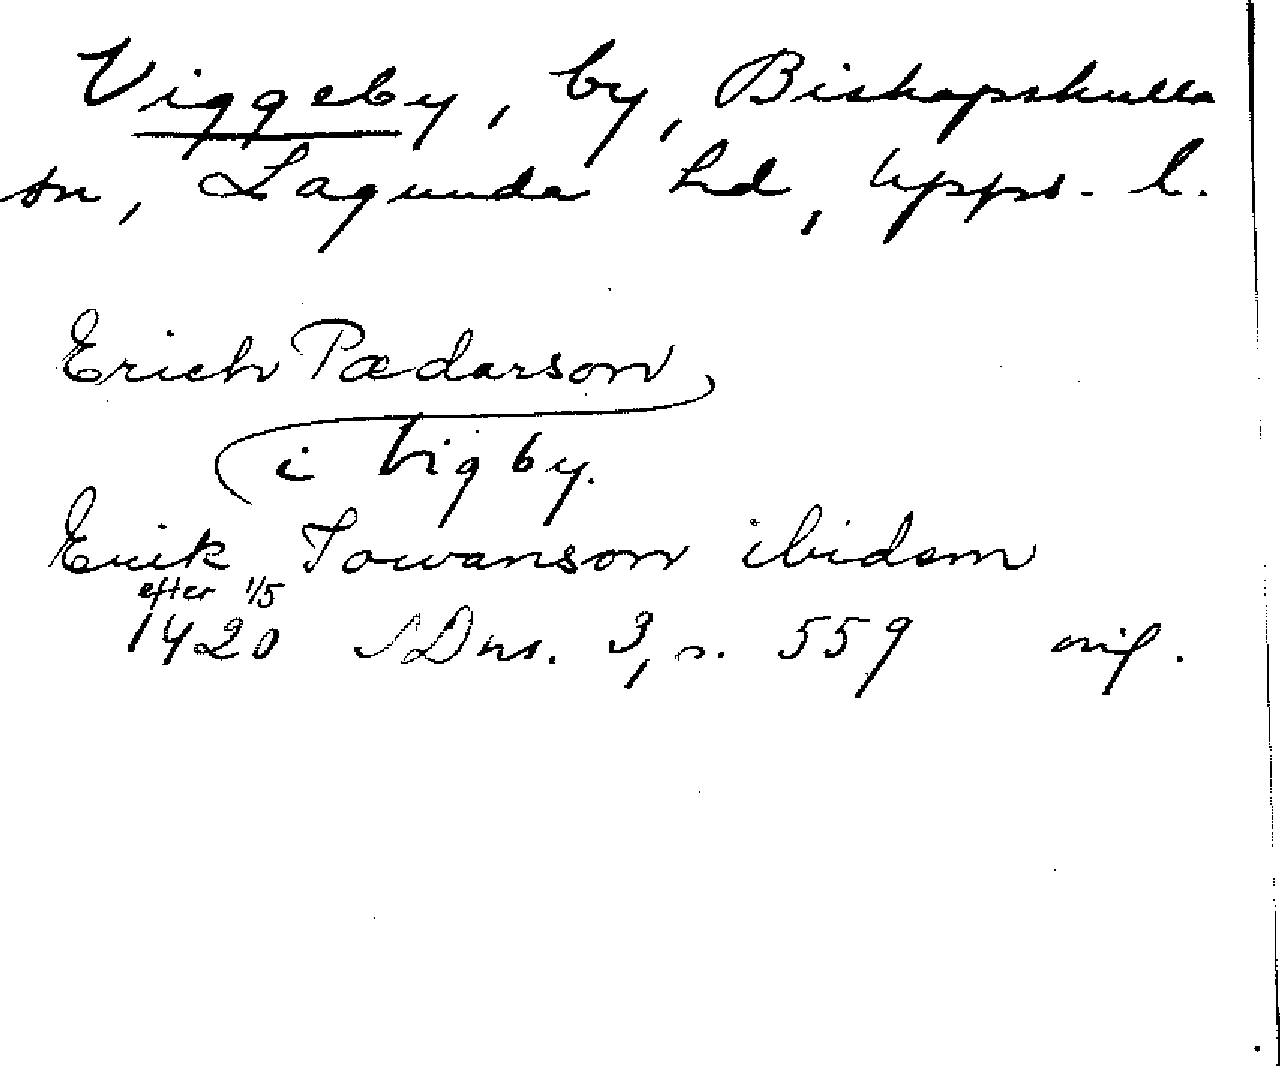 Viggeby, by, Biskopskulla
sn, Lagunda hd, Upps. l.
Erich Pædarson
i vigby.
Erik Towanson ibidem
efter 1/5
1420 SDns. 3, s. 559 orig.